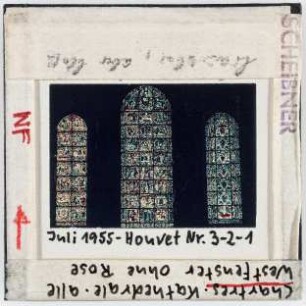 brauchbar, aber blaß
SCHEIBNER
NF
Juli 1955-Houvet Nr. 3-2-1
Chartres Kathedrale alle
Westfenster ohne Rose